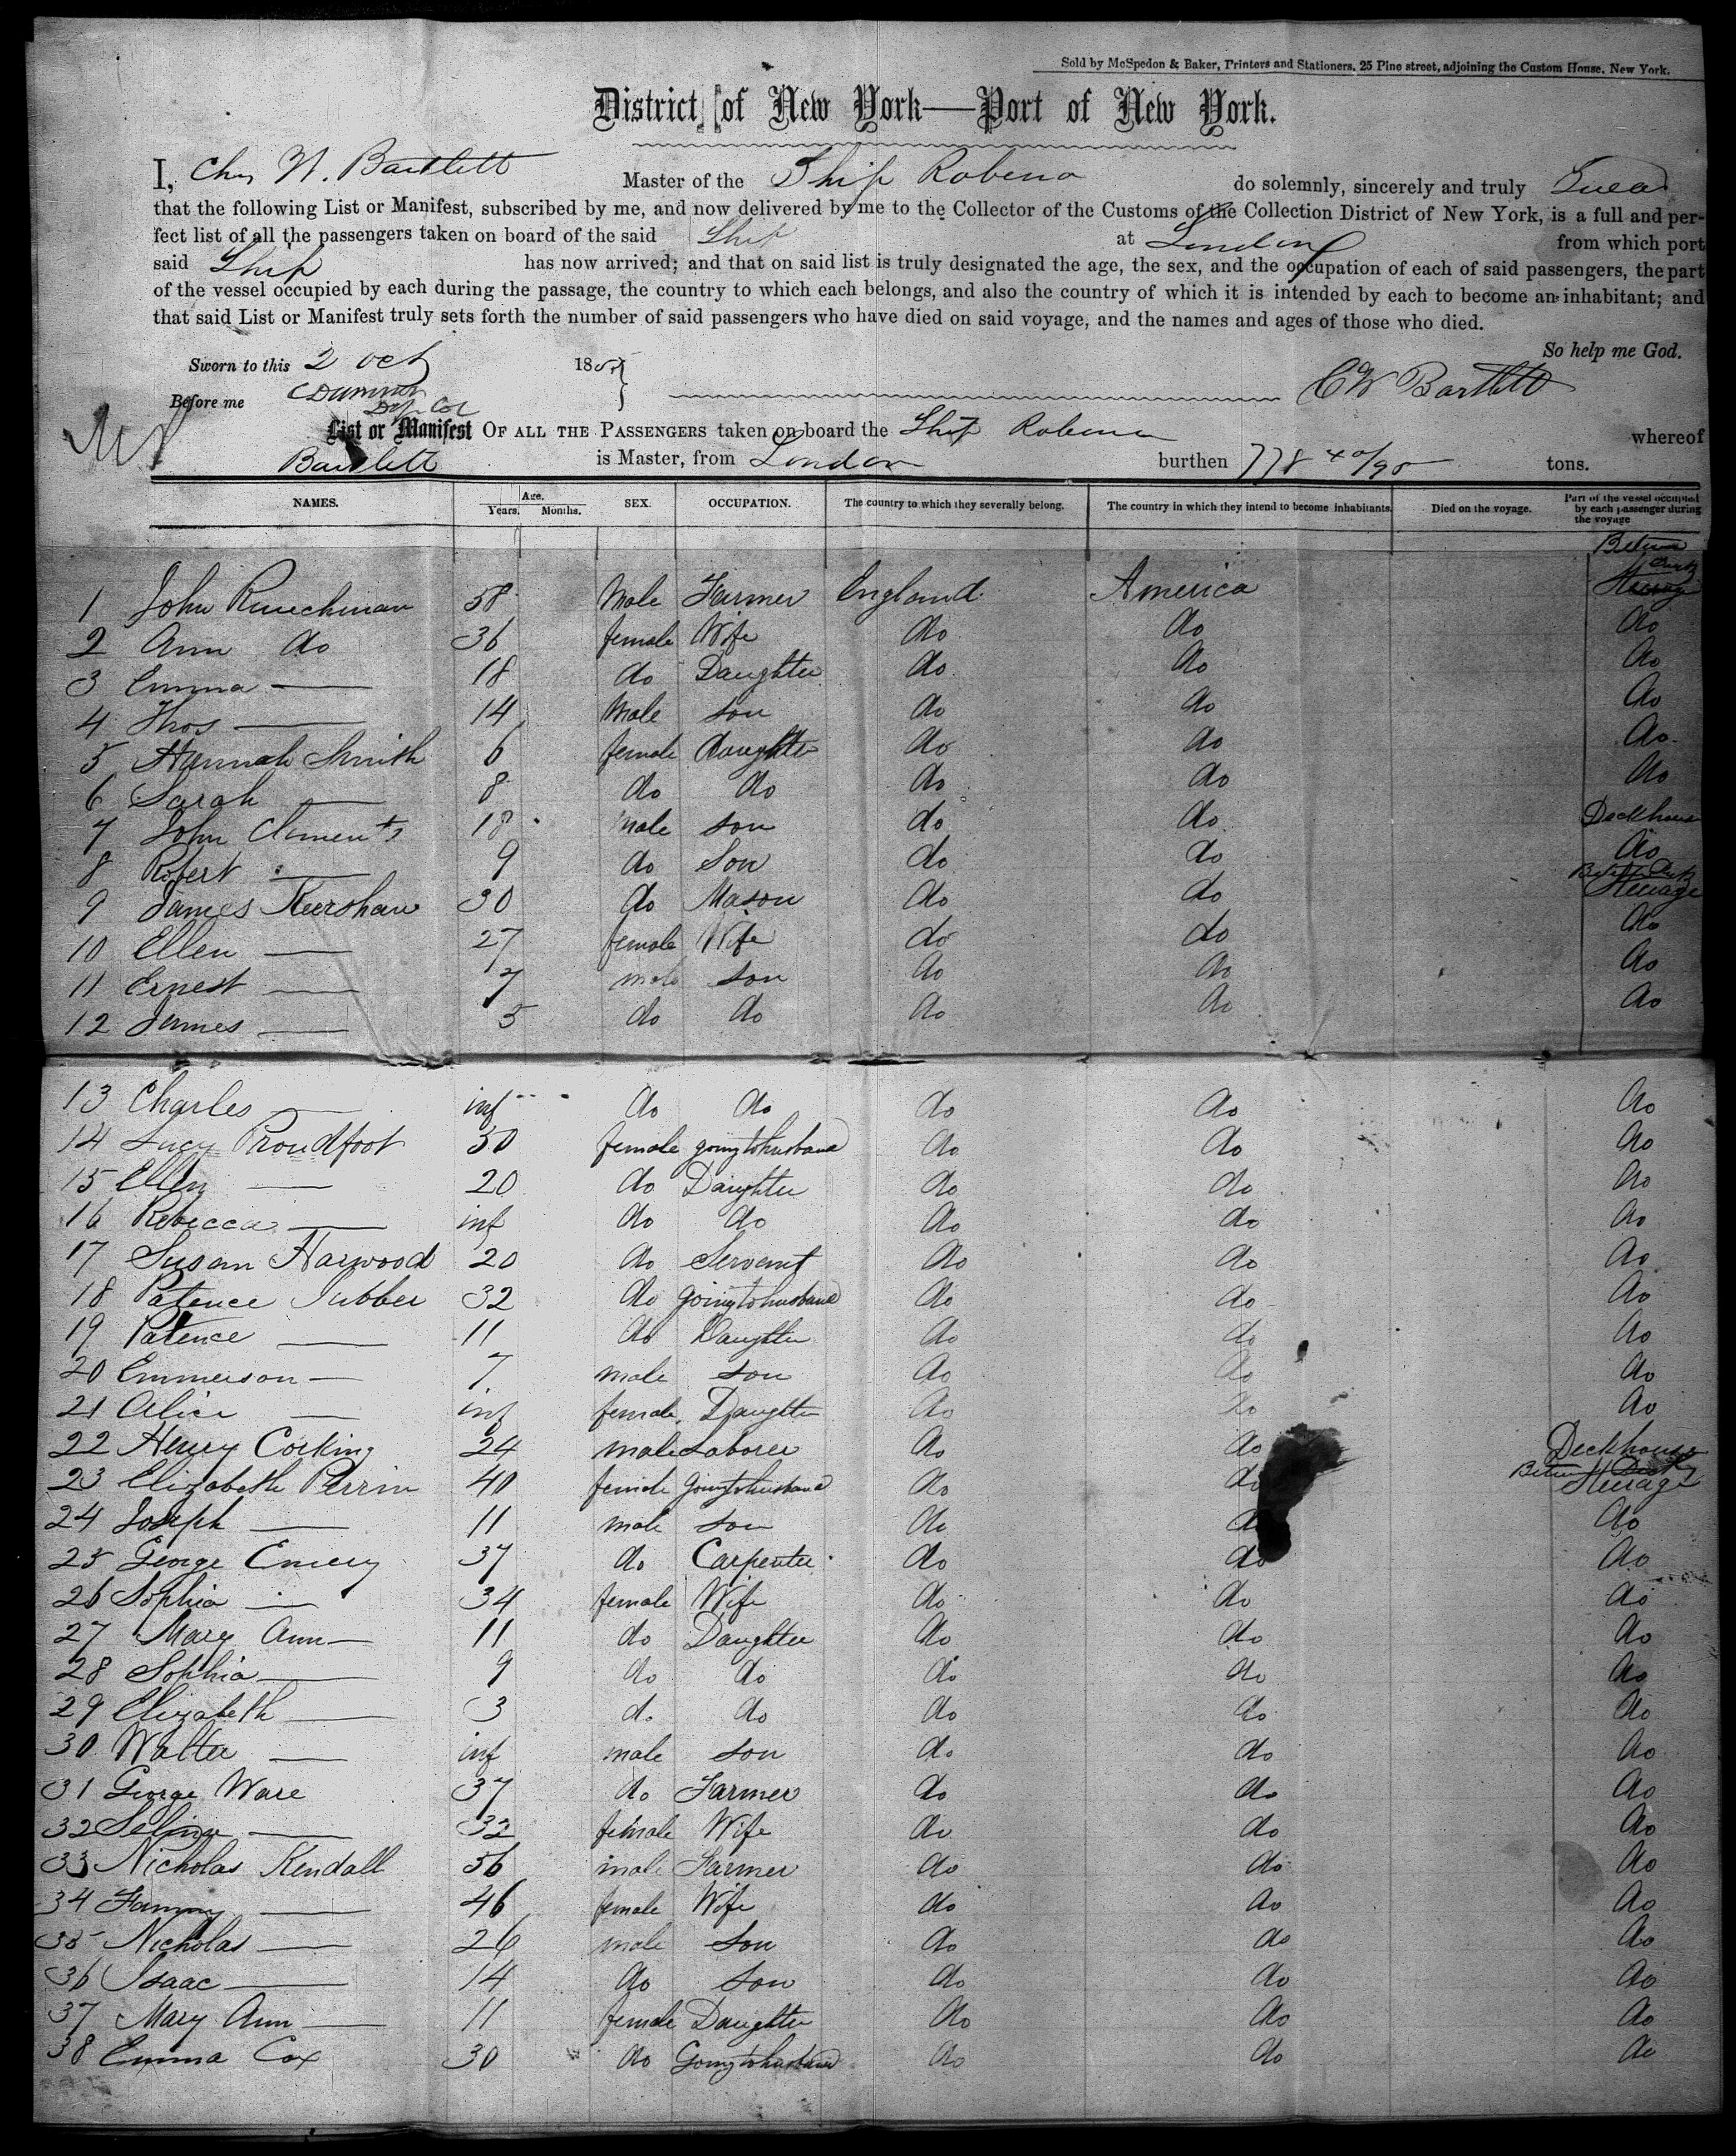 Sold by McSpedon & Baker, Printers and Stationers, 25 Pine street, adjoining the Custom House, New York.
District of New York—Port of New York.
I, Chs W. Bartlett Master of the Ship Robena do solemnly, sincerely and truly
that the following List or Manifest, subscribed by me, and now delivered by me to the Collector of the Customs of the Collection District of New York, is a full and per-
fect list of all the passengers taken on board of the said Ship at London from which port
said Ship has now arrived; and that on said list is truly designated the age, the sex, and the occupation of each of said passengers, the part
of the vessel occupied by each during the passage, the country to which each belongs, and also the country of which it is intended by each to become an inhabitant; and
that said List or Manifest truly sets forth the number of said passengers who have died on said voyage, and the names and ages of those who died.
So help me God.
Sworn to this 2 Oct 185
Before me CW Bartlett
Dep Col
List or Manifest OF ALL THE PASSENGERS taken on board the Ship Robena whereof
Bartlett is Master, from London burthen 778 40/95 tons.
NAMES. Age. Years. Months. SEX. OCCUPATION. The country to which they severally belong. The country in which they intend to become inhabitants. Died on the voyage. Part of the vessel occupied by each passenger during the voyage
Between Decks
1 John Runchman 58 Male Farmer England America Steerage
2 Ann do 36 female Wife do do do
3 Emma — 18 do Daughter do do do
4 Thos — 14 Male son do do do
5 Hannah Smith 6 female daughter do do do
6 Sarah — 8 do do do do do
7 John Clements 18 male son do do Deckhouse
8 Robert — 9 do Son do do do
Between Decks
9 James Kershaw 30 do Mason do do Steerage
10 Ellen — 27 female Wife do do do
11 Ernest — 7 male son do do do
12 James — 5 do do do do do
13 Charles — inf do do do do do
14 Lucy Proudfoot 50 female going to husband do do do
15 Ellen — 20 do Daughter do do do
16 Rebecca — inf do do do do do
17 Susan Harwood 20 do Servant do do do
18 Patence Jubber 32 do going to husband do do do
19 Patence — 11 do Daughter do do do
20 Emmerson — 7 male son do do do
21 Alice — inf female Daughter do do do
22 Henry Corking 24 male Laborer do do Deckhouse
Between Decks
23 Elizabeth Perrin 40 female Going to husband do do Steerage
24 Joseph — 11 male son do do do
25 George Emery 37 do Carpenter do do do
26 Sophia — 34 female Wife do do do
27 Mary Ann — 11 do Daughter do do do
28 Sophia — 9 do do do do do
29 Elizabeth — 3 do do do do do
30 Walter — inf male son do do do
31 George Ware 37 do Farmer do do do
32 Selina — 32 female Wife do do do
33 Nicholas Kendall 56 male Farmer do do do
34 Fanny — 46 female Wife do do do
35 Nicholas — 26 male Son do do do
36 Isaac — 14 do Son do do do
37 Mary Ann — 11 female Daughter do do do
38 Emma Cox 30 do Going to husband do do do